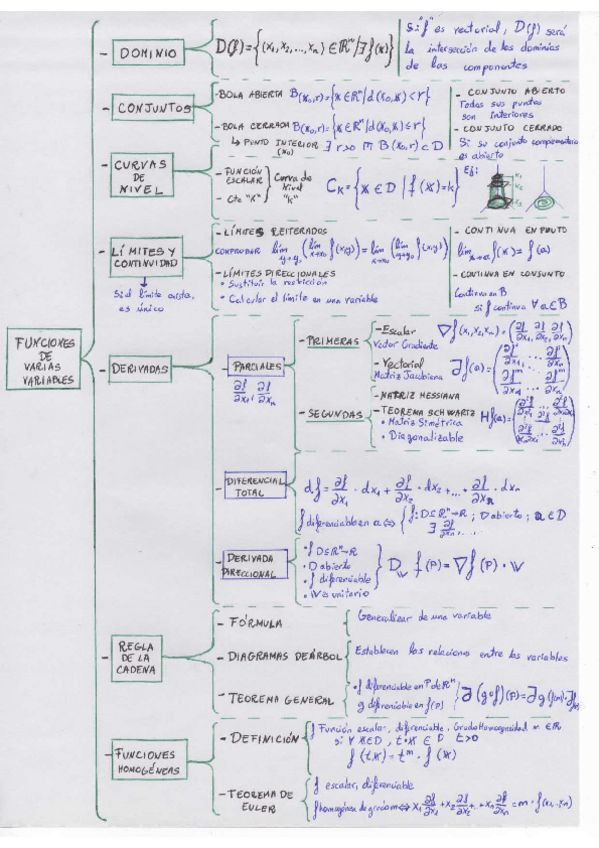 FUNCIONES
DE
VARIAS
VARIABLES
- DOMINIO
D(f) = {(x₁, x₂, ..., xₙ) ∈ ℝⁿ / ∃ f(x)}
Si "f" es vectorial, D(f) será
la intersección de los dominios
de las componentes
- CONJUNTOS
- BOLA ABIERTA B(x₀,r) = {x ∈ ℝⁿ / d(x₀,x) < r}
- BOLA CERRADA B(x₀,r) = {x ∈ ℝⁿ / d(x₀,x) ≤ r}
↳ PUNTO INTERIOR ∃ r>0 B(x₀,r) ⊂ D
(x₀)
- CONJUNTO ABIERTO
Todos sus puntos
son interiores
- CONJUNTO CERRADO
Si su conjunto complementario
es abierto
- CURVAS
DE
NIVEL
- FUNCIÓN
ESCALAR
- Cte "K"
Curva de
Nivel
"k"
Cₖ = {x ∈ D / f(x) = k}
Ej:
- LÍMITES Y
CONTINUIDAD
Si el límite existe,
es único
- LÍMITES REITERADOS
COMPROBAR lim y→y₀ (lim x→x₀ f(x,y)) = lim x→x₀ (lim y→y₀ f(x,y))
- LÍMITES DIRECCIONALES
• Sustituir la restricción
• Calcular el límite en una variable
- CONTINUA EN PUNTO
lim x→a f(x) = f(a)
- CONTINUA EN CONJUNTO
Continua en B
si f continua ∀ a ∈ B
- DERIVADAS
- PARCIALES
∂f/∂x₁ ∂f/∂xₙ
- PRIMERAS
- Escalar
Vector Gradiente
- Vectorial
Matriz Jacobiana
- SEGUNDAS
- MATRIZ HESSIANA
- TEOREMA SCHWARTZ
• Matriz Simétrica
• Diagonalizable
- DIFERENCIAL
TOTAL
df = ∂f/∂x₁ · dx₁ + ∂f/∂x₂ · dx₂ + ... + ∂f/∂xₙ · dxₙ
f diferenciable en a ⟺ { f: D⊆ℝⁿ→ℝ ; D abierto ; a ∈ D
∃ ∂f/∂xₙ ...
- DERIVADA
DIRECCIONAL
• f D⊆ℝⁿ→ℝ
• D abierto
• f diferenciable
• v es unitario
D_v f(P) = ∇f(P) · v
- REGLA
DE LA
CADENA
- FÓRMULA
Generalizar de una variable
- DIAGRAMAS DE ÁRBOL
Establecen las relaciones entre las variables
- TEOREMA GENERAL
• f diferenciable en P de ℝⁿ
g diferenciable en f(P)
∂(g∘f)(P) = ∂g(f(P)) · ∂f(P)
- FUNCIONES
HOMOGÉNEAS
- DEFINICIÓN
f Función escalar, diferenciable. Grado Homogeneidad m ∈ ℝ
si ∀ x ∈ D, t·x ∈ D t>0
f(t,x) = tᵐ · f(x)
- TEOREMA DE
EULER
f escalar, diferenciable
f homogénea de grado m ⟺ x₁ ∂f/∂x₁ + x₂ ∂f/∂x₂ + ... + xₙ ∂f/∂xₙ = m · f(x₁,...,xₙ)